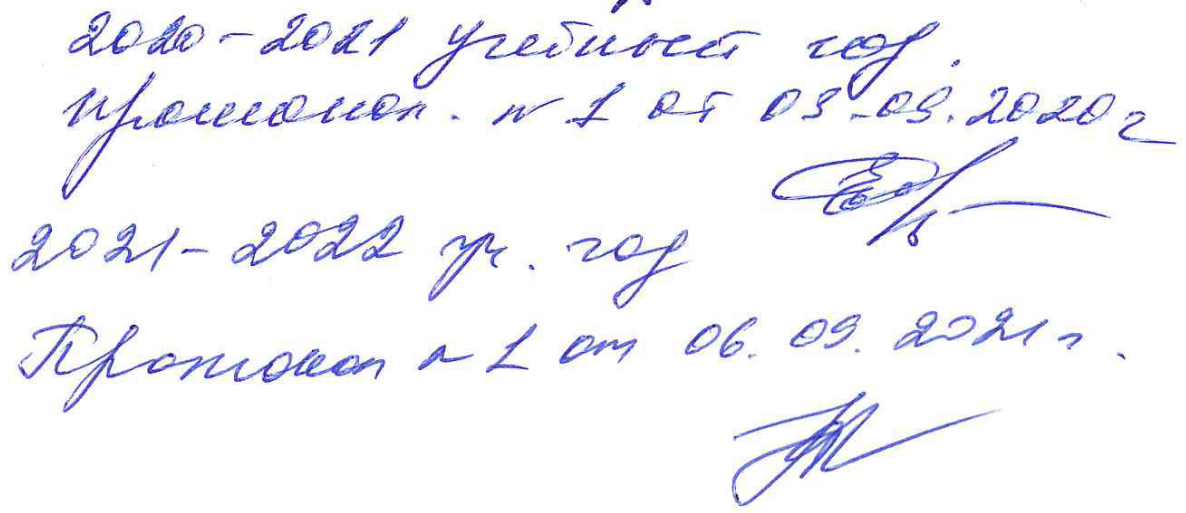 2020-2021 учебный год.
протокол. N 1 от 03.09.2020 г
2021-2022 уч. год
Протокол N 1 от 06.09.2021 г.